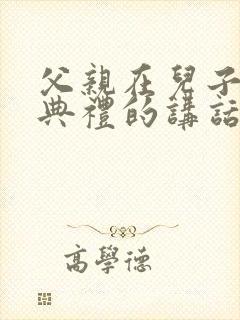 父親在兒子
典禮的講話
高學德